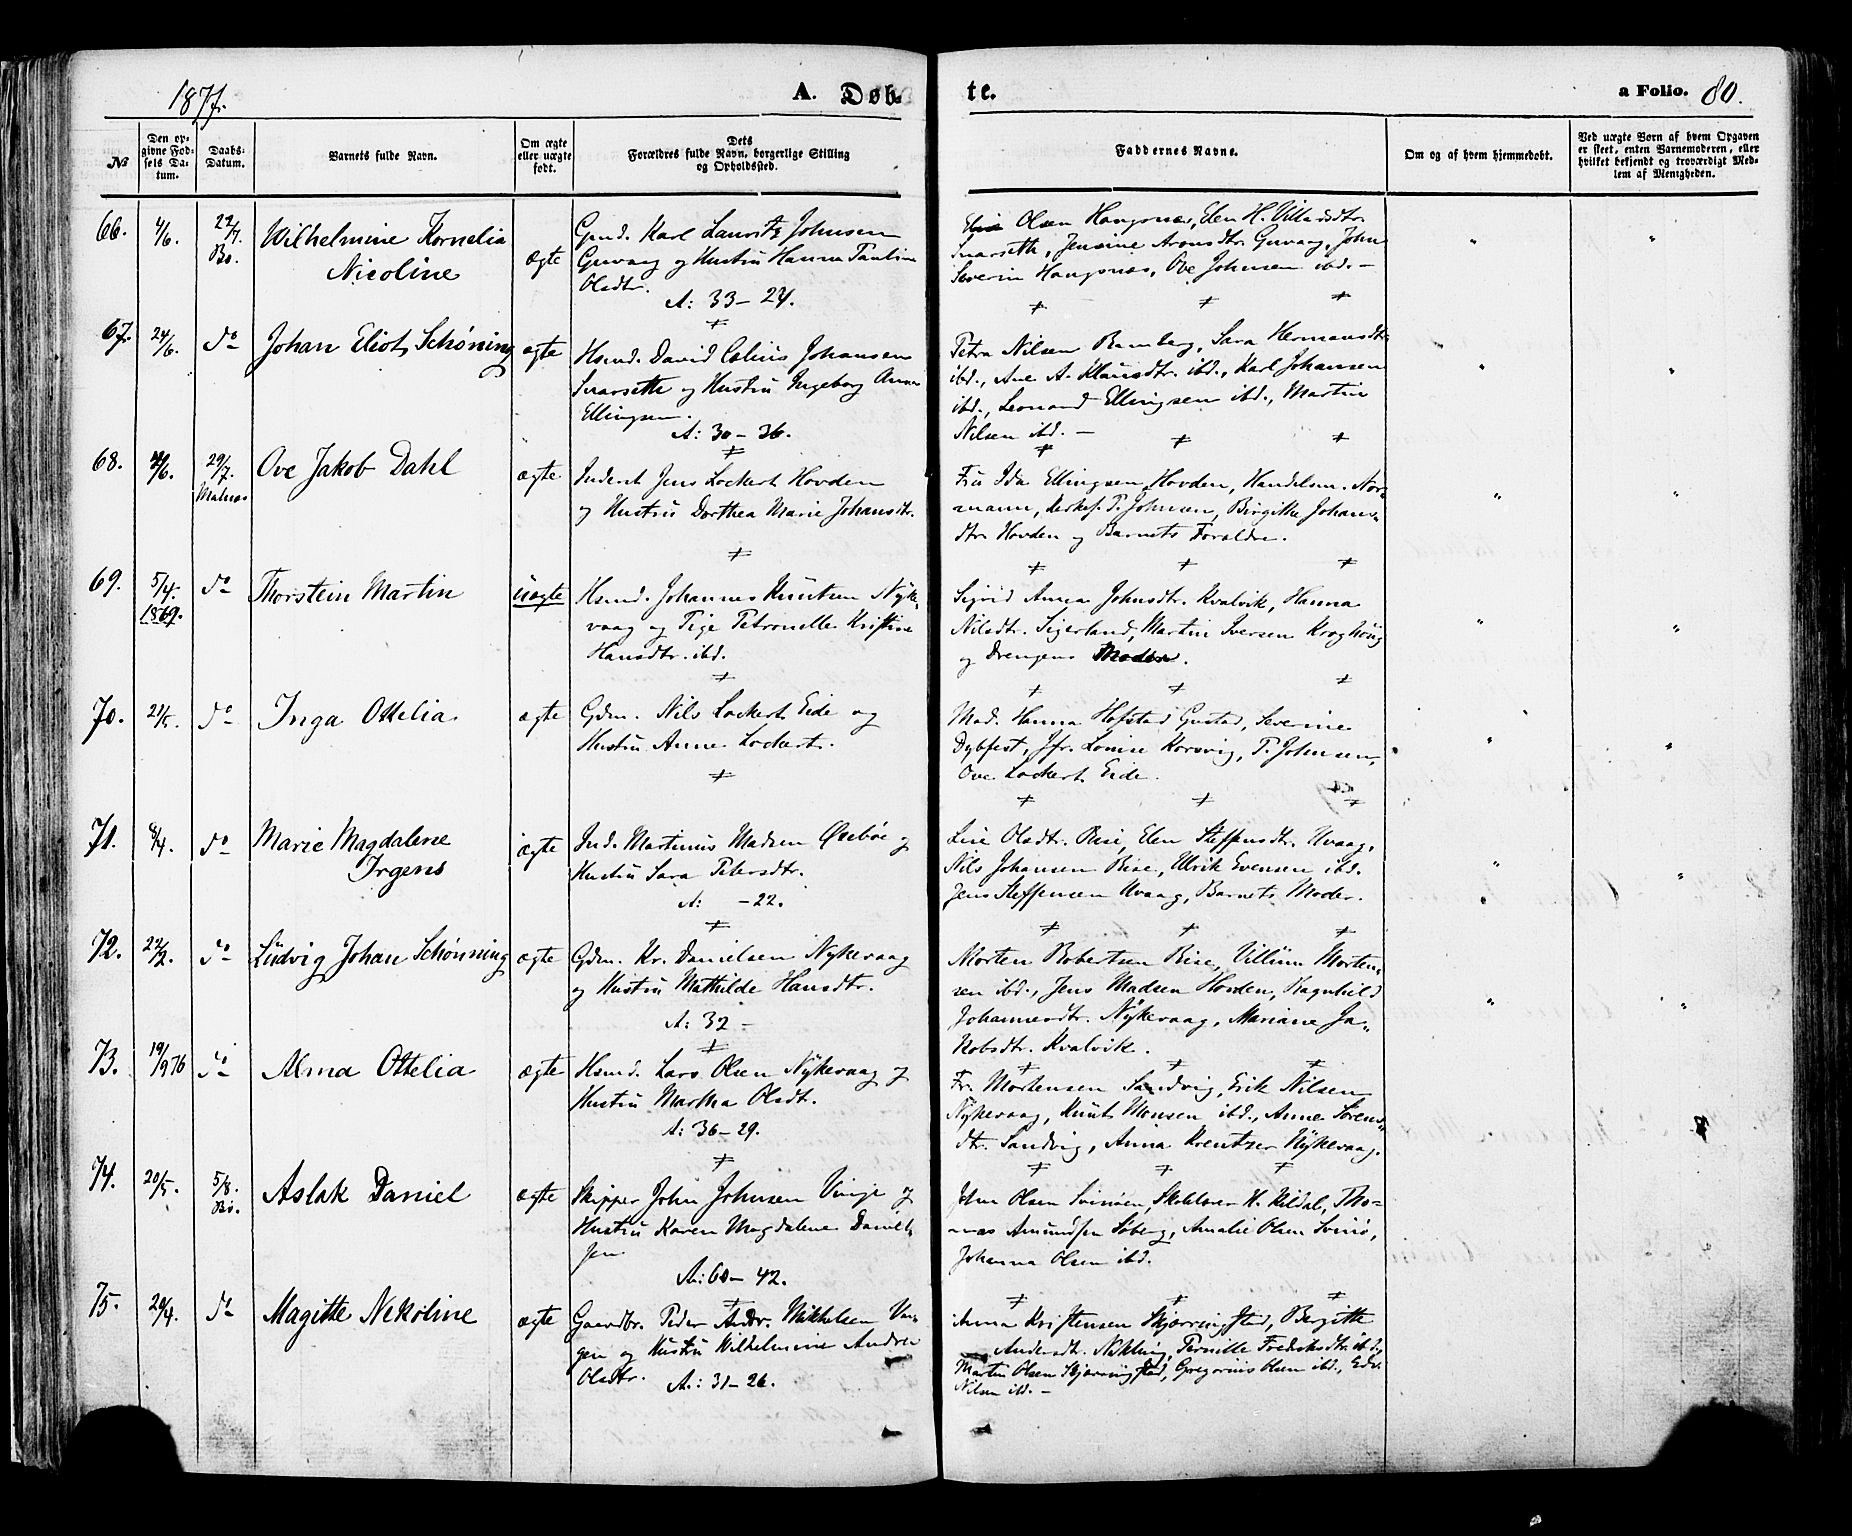 1877.
A. Døb-
te.
a Folio. 80.
No
Den op-
givne Fød-
sels Da-
tum.
Daabs-
Datum.
Barnets fulde Navn.
Om ægte
eller uægte
født.
Dets
Forældres fulde Navn, borgerlige Stilling
og Opholdssted.
Faddernes Navne.
Om og af hvem hjemmedøbt.
Ved uægte Børn af hvem Opgaven
er skeet, enten Barnemoderen, eller
hvilket bekjendt og troværdigt Med-
lem af Menigheden.
66.
4/6.
22/7.
Bø.
Wilhelmine Kornelia
Nicoline
ægte
Gmd. Karl Lauritz Johnsen
Guvaag og Hustru Hanna Paulina
Olsdtr.
A: 33 - 24.
Olsen Haugsnæs, Elen H. Villadsdtr.
Snarseth, Jensine Aronsdtr. Guvaag, John
Severin Haugsnæs, Ove Johnsen ibd. -
67.
24/6.
do
Johan Eliot Schøning
ægte
Hsmd. David Colius Johansen
Snarseth og Hustru Ingeborg Anna
Ellingsen.
A: 30 - 36.
Petra Nilsen Ramberg, Sara Hermansdtr.
ibd., Ane A. Klausdtr. ibd., Karl Johansen
ibd., Leonard Ellingsen ibd., Martin
Nilsen ibd. -
68.
29/7.
Malnes
Ove Jakob Dahl
ægte
Inderst Jens Lockert Hovden
og Hustru Dorthea Marie Johansdtr.
Fru Ida Ellingsen Hovden, Handelsm. Nor-
mann, Kirkes. P. Johnsen, Birgitte Johans-
dtr. Hovden og Barnets Forældre.
69.
5/4.
1869.
do
Thorstein Martin
uægte
Hsmd. Johannes Knutsen Nyke-
vaag og Pige Petronelle Kristine
Hansdtr. ibd.
Sigrid Anna Johnsdtr. Kvalvik, Hanna
Nilsdtr. Sigerland, Martin Iversen Kroghøug
og Drengens Moder.
70.
21/5.
do
Inga Ottelia
ægte
Gdm. Nils Lockert Eide og
Hustru Anne Lockert.
Mad. Hanna Hofstad Gustad, Severine
Dybfest, Jfr. Louise Korsvig, P. Johnsen,
Ove Lockert Eide.
71.
8/4.
do
Marie Magdalene
Irgens
ægte
Ind. Martinus Madsen Øvebøe og
Hustru Sara Petersdtr.
A: -22.
Lise Olsdtr. Rise, Elen Steffensdtr. Uvaag,
Nils Johansen Rise, Ulrik Evensen ibd.
Jens Steffensen Uvaag, Barnets Moder.
72.
22/2.
do
Ludvig Johan Schønning
ægte
Gdm. Kr. Danielsen Nykevaag
og Hustru Mathilde Hansdtr.
A: 32 -
Morten Robertsen Rise, Villum Morten-
sen ibd., Jens Madsen Hovden, Ragnhild
Johannesdtr. Nykevaag, Mariane Ja-
kobsdtr. Kvalvik.
73.
19/9 76
do
Alma Ottelia
ægte
Hsmd. Lars Olsen Nykevaag og
Hustru Martha Olsdt.
A: 36 - 29.
Fr. Mortensen Sandvig, Erik Nilsen
Nykevaag, Knut Monsen ibd., Anne Sørens-
dtr. Sandvig, Anna Kreutzer Nykevaag.
74.
20/5.
5/8.
Bø.
Aslak Daniel
ægte
Skipper John Johnsen Vinje og
Hustru Karen Magdalene Daniel-
sen
A: 60 - 42.
John Olsen Svinøen, Skolelærer H. Kildal, Tho-
mas Amundsen Søberg, Amalie Olsen Svinø,
Johanna Olsen ibd.
75.
29/4.
do
Magitte Nekoline
ægte
Gaardbr. Peder Andr. Mikkelsen Vin-
gen og Hustru Wilhelmine Andrea
Olsdtr.
A: 31 - 26.
Anna Kristensen Skjærringstad, Bergitte
Andersdt. Nykling, Pernille Fredriksdtr. ibd,
Martin Olsen Skjærringstad, Gregorius Olsen ibd., Edv.
Nilsen ibd. -